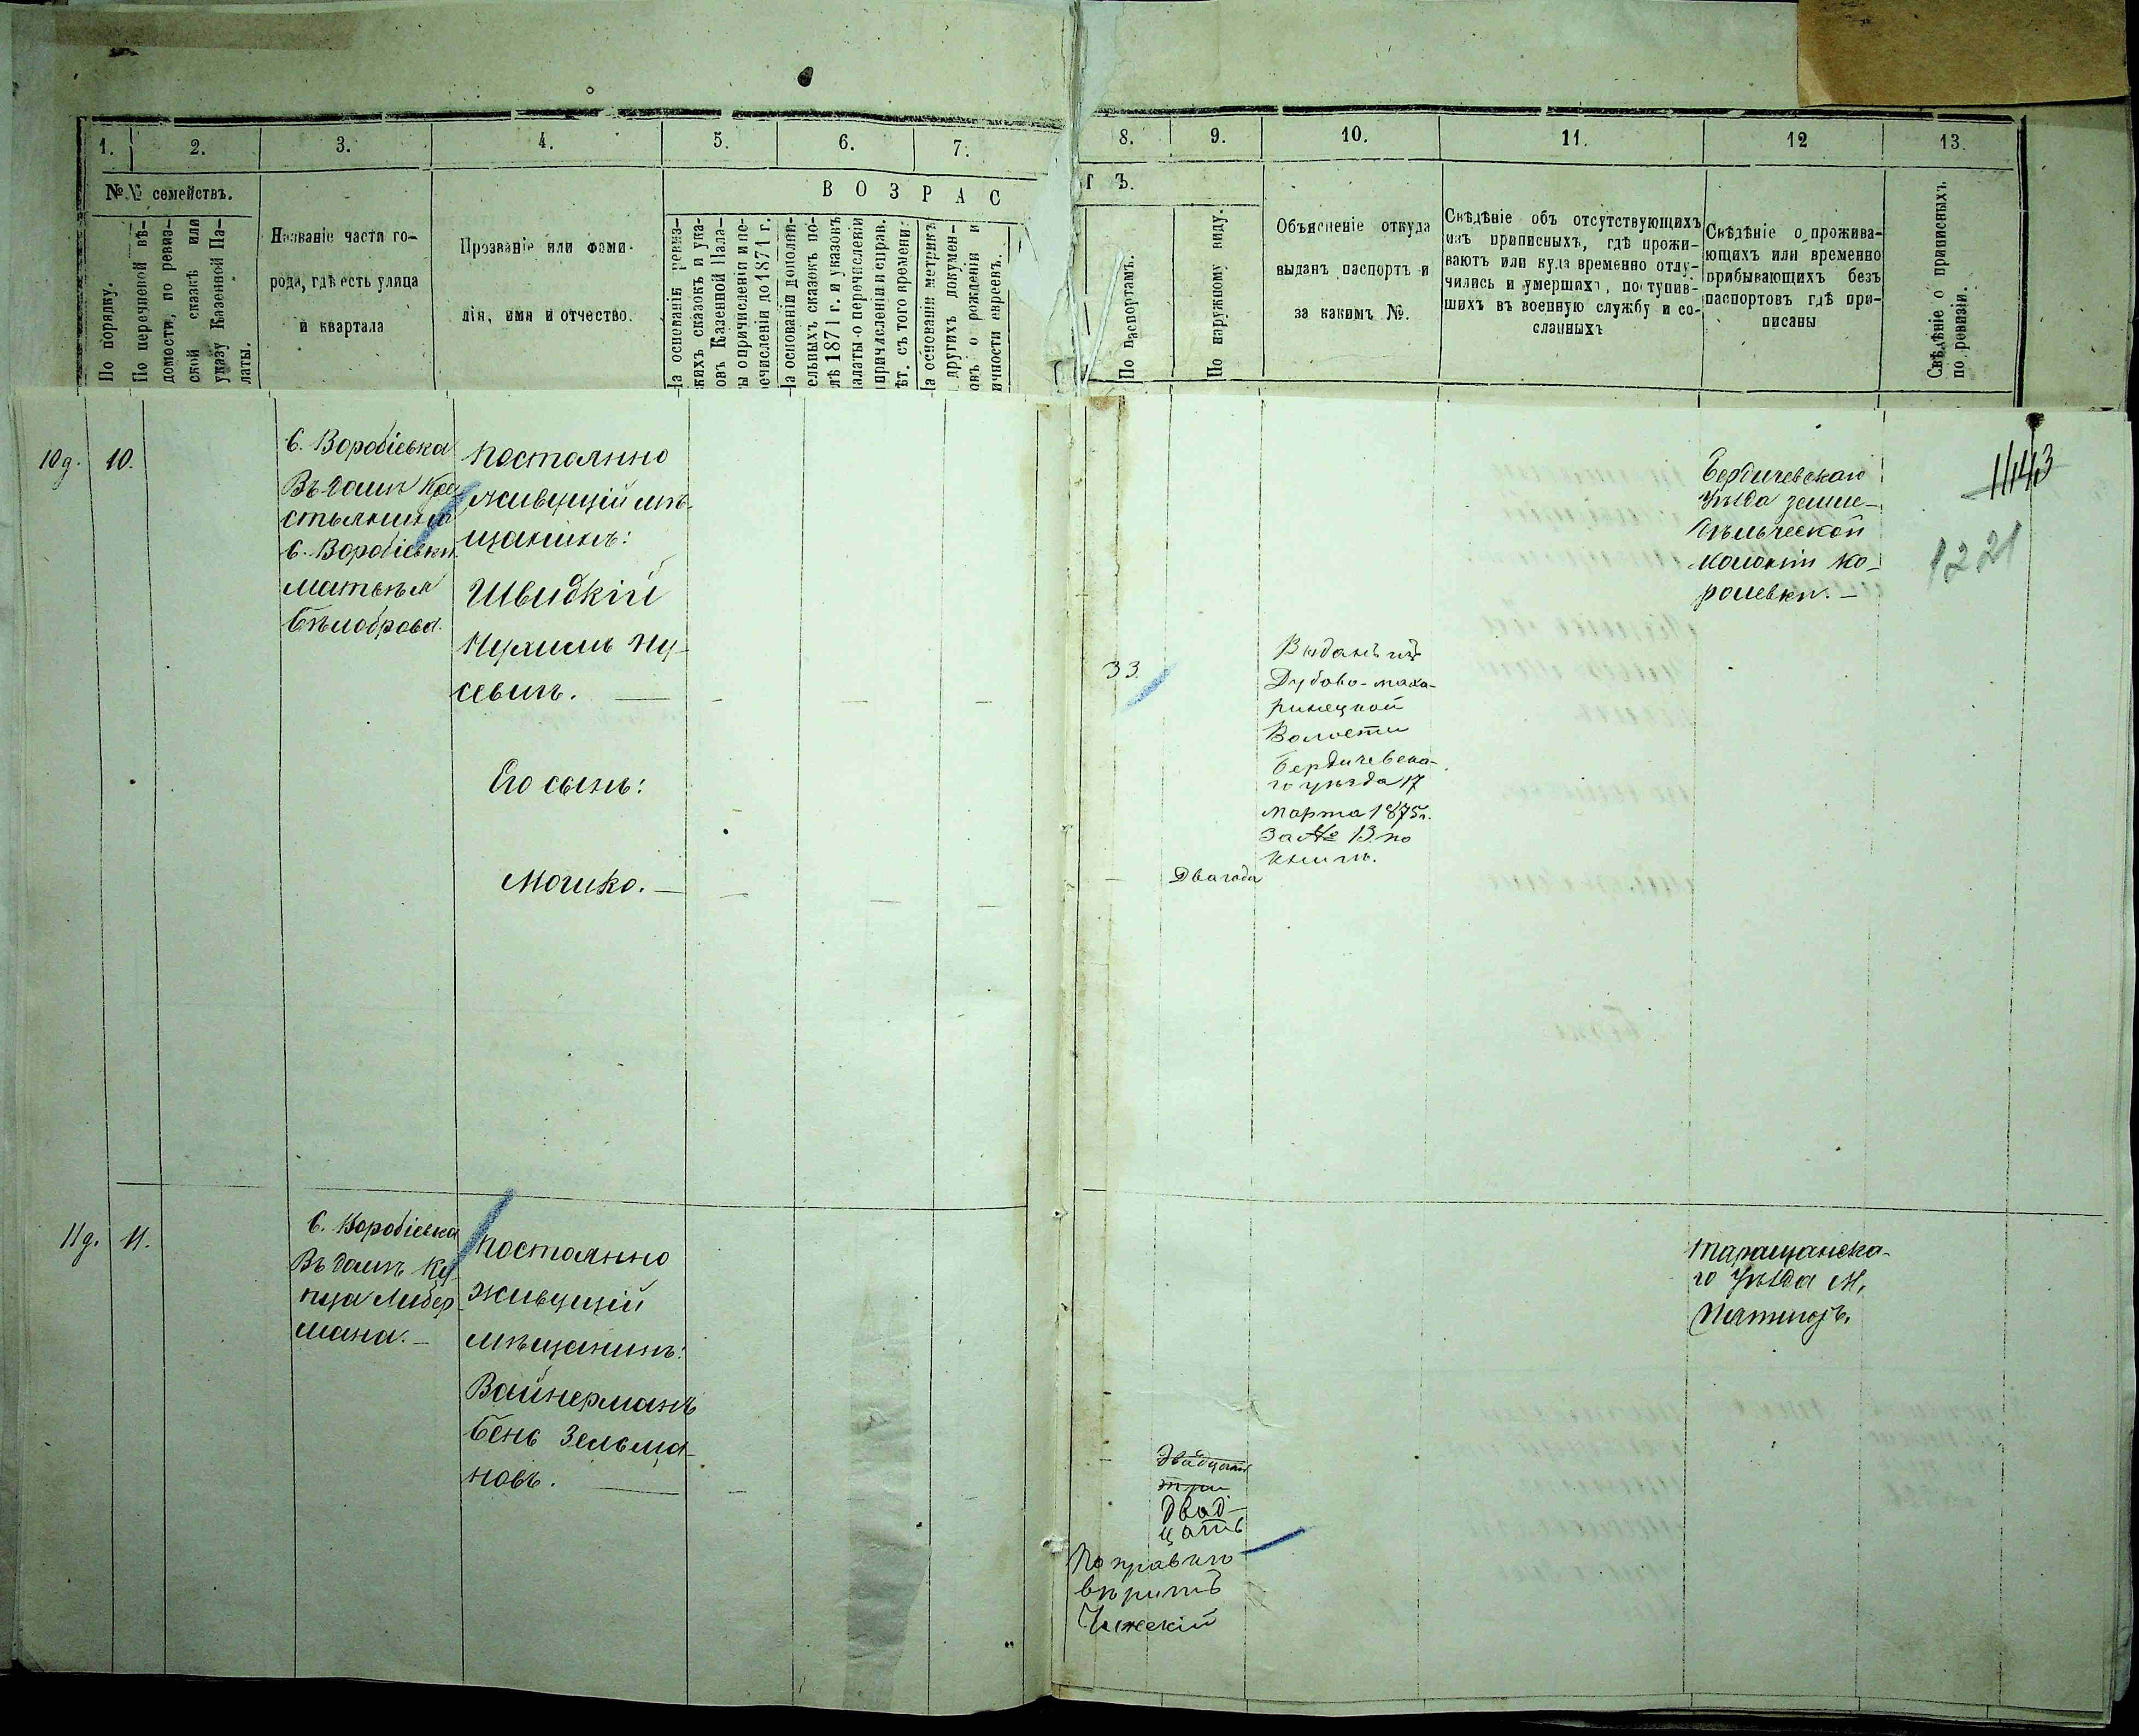 1.
2.
3.
4.
5.
6.
7.
8.
9.
10.
11.
12
13.
№№ семействъ.
По порядку.
По перечневой вѣ-
домости, по ревиз-
ской сказкѣ или
указу Казенной Па-
латы.
Названіе части го-
рода, гдѣ есть улица
и квартала
Прозваніе или фами-
лія, имя и отчество.
ВОЗРАС
На основаніи ревиз-
скихъ сказокъ и ука-
овъ Казенной Пала-
ы о причисленіи и пе-
речисленіи до 1871 г.
На основаніи дополни-
ельныхъ сказокъ по-
лѣ 1871 г. и указовъ
алаты о перечисленіи
причисленіи и справ.
ѣт. съ того времени.
На основаніи метрикъ
другихъ докумен-
овъ о рожденіи и
ичности евреевъ.
ТЪ.
По паспортамъ.
По наружному виду.
Объясненіе откуда
выданъ паспортъ и
за какимъ №.
Свѣдѣніе объ отсутствующихъ
изъ приписныхъ, гдѣ прожи-
ваютъ или куда временно отлу-
чились и умершихъ, поступив-
шихъ въ военную службу и со-
сланныхъ
Свѣдѣніе о прожива-
ющихъ или временно
прибывающихъ безъ
паспортовъ гдѣ при-
писаны
Свѣдѣніе о приписныхъ
по ревизіи.
10д. 10.
С. Воробіевка
Въ домѣ Кре-
стьянина
С. Воробіевки
Матвѣя
Бѣлоброва.
Постоянно
живущій мѣ-
щанинъ:
Швидкій
Нухимъ Ну-
севичъ. —
Его сынъ:
Мошко. —
33.
Два года
Выданъ изъ
Дубово-маха-
ринецкой
Волости
Бердичевска-
го уѣзда 17
Марта 1875г.
За № 13 по
книгѣ.
Бердичевскаго
Уѣзда земле-
дѣльческой
колоніи Ко-
ролевки. —
1143
1221
11д. 11.
С. Воробіевка
Въ домѣ Ку-
пца Либер-
мана. —
Постоянно
Живущій
мѣщанинъ:
Вайнерманъ
Бень Зельма-
новъ. —
Двадцать
три
Двад-
цать
Поправило
вѣритъ
Таращанска-
го Уѣзда М.
Пятигоръ.